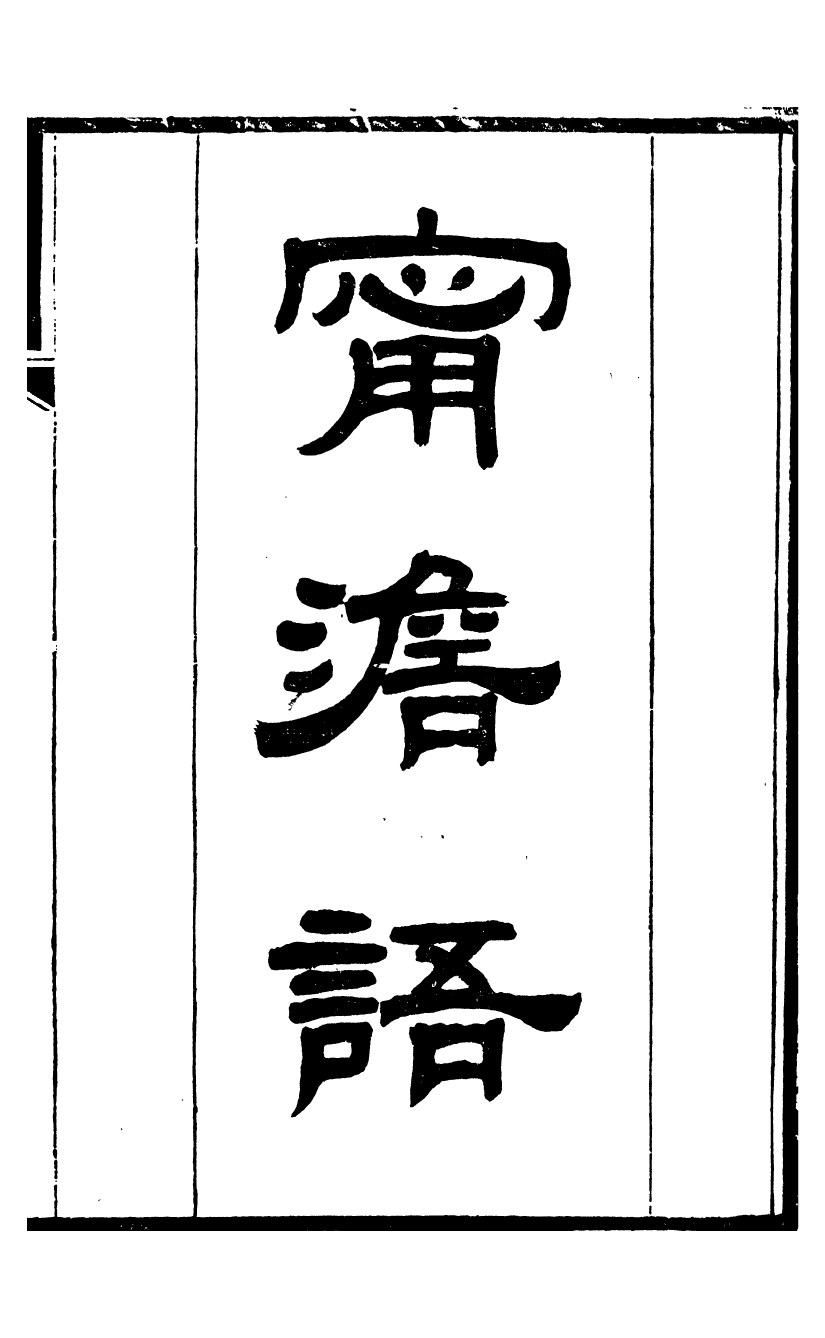 甯澹語